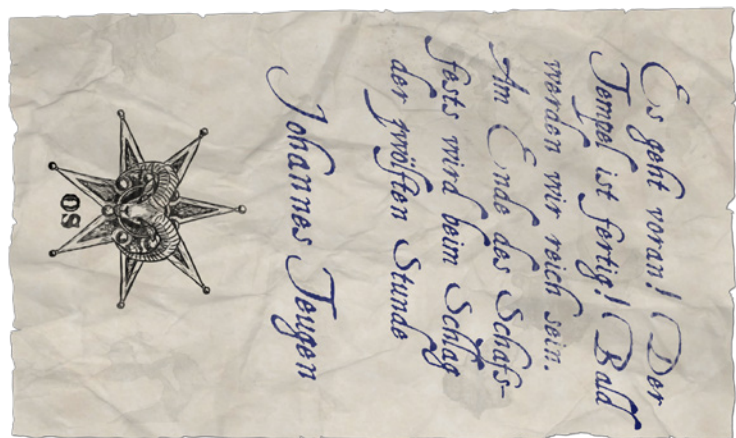 Es geht voran! Der
Tempel ist fertig! Bald
werden wir reich sein.
Am Ende des Schafs-
fests wird beim Schlag
der zwölften Stunde
Johannes Teugen
SO